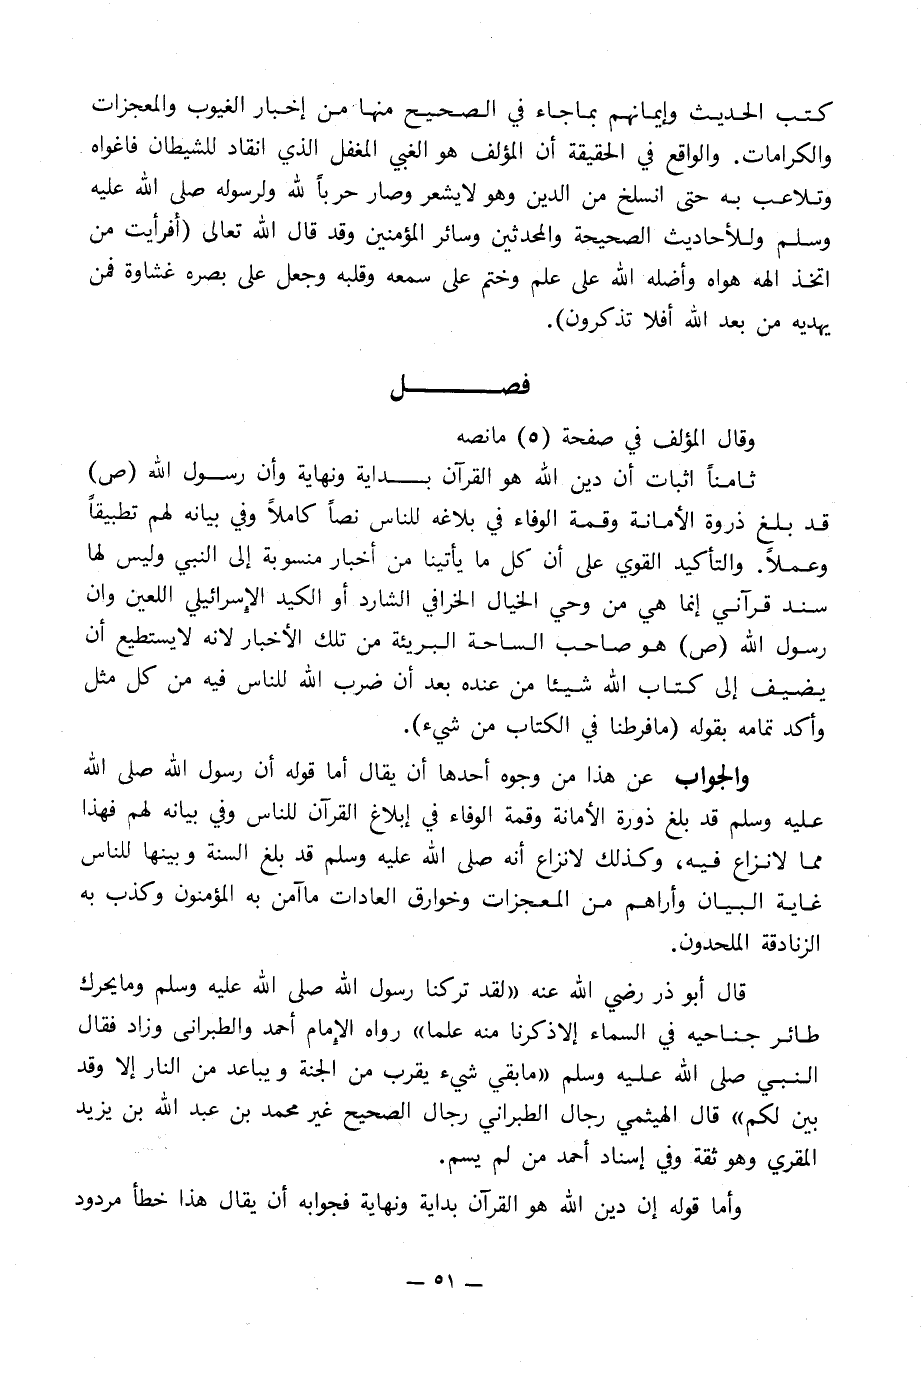 كتب الحديث وإيمانهم بماجاء في الصحيح منها من إخبار الغيوب والمعجزات
والكرامات. والواقع في الحقيقة أن المؤلف هو الغبي المغفل الذي انقاد للشيطان فاغواه
وتلاعب به حتى انسلخ من الدين وهو لايشعر وصار حرباً لله ولرسوله صلى الله عليه
وسلم وللأحاديث الصحيحة والمحدثين وسائر المؤمنين وقد قال الله تعالى (أفرأيت من
اتخذ الهه هواه وأضله الله على علم وختم على سمعه وقلبه وجعل على بصره غشاوة فمن
يهديه من بعد الله أفلا تذكرون).
فصل
وقال المؤلف في صفحة (٥) مانصه
ثامناً اثبات أن دين الله هو القرآن بداية ونهاية وأن رسول الله (ص)
قد بلغ ذروة الأمانة وقمة الوفاء في بلاغه للناس نصاً كاملاً وفي بيانه لهم تطبيقاً
وعملاً. والتأكيد القوي على أن كل ما يأتينا من أخبار منسوبة إلى النبي وليس لها
سند قرآني إنما هي من وحي الخيال الخرافي الشارد أو الكيد الإسرائيلي اللعين وان
رسول الله (ص) هو صاحب الساحة البريئة من تلك الأخبار لانه لايستطيع أن
يضيف إلى كتاب الله شيئا من عنده بعد أن ضرب الله للناس فيه من كل مثل
وأكد تمامه بقوله (مافرطنا في الكتاب من شيء).
والجواب عن هذا من وجوه أحدها أن يقال أما قوله أن رسول الله صلى الله
عليه وسلم قد بلغ ذورة الأمانة وقمة الوفاء في إبلاغ القرآن للناس وفي بيانه لهم فهذا
مما لانزاع فيه، وكذلك لانزاع أنه صلى الله عليه وسلم قد بلغ السنة وبينها للناس
غاية البيان وأراهم من المعجزات وخوارق العادات ماآمن به المؤمنون وكذب به
الزنادقة الملحدون.
قال أبو ذر رضي الله عنه «لقد تركنا رسول الله صلى الله عليه وسلم ومايحرك
طائر جناحيه في السماء إلاذكرنا منه علما» رواه الإمام أحمد والطبرانى وزاد فقال
النبي صلى الله عليه وسلم «مابقي شيء يقرب من الجنة ويباعد من النار إلا وقد
بين لكم» قال الهيثمي رجال الطبراني رجال الصحيح غير محمد بن عبد الله بن يزيد
المقري وهو ثقة وفي إسناد أحمد من لم يسم.
وأما قوله إن دين الله هو القرآن بداية ونهاية فجوابه أن يقال هذا خطأ مردود
— ٥١ —